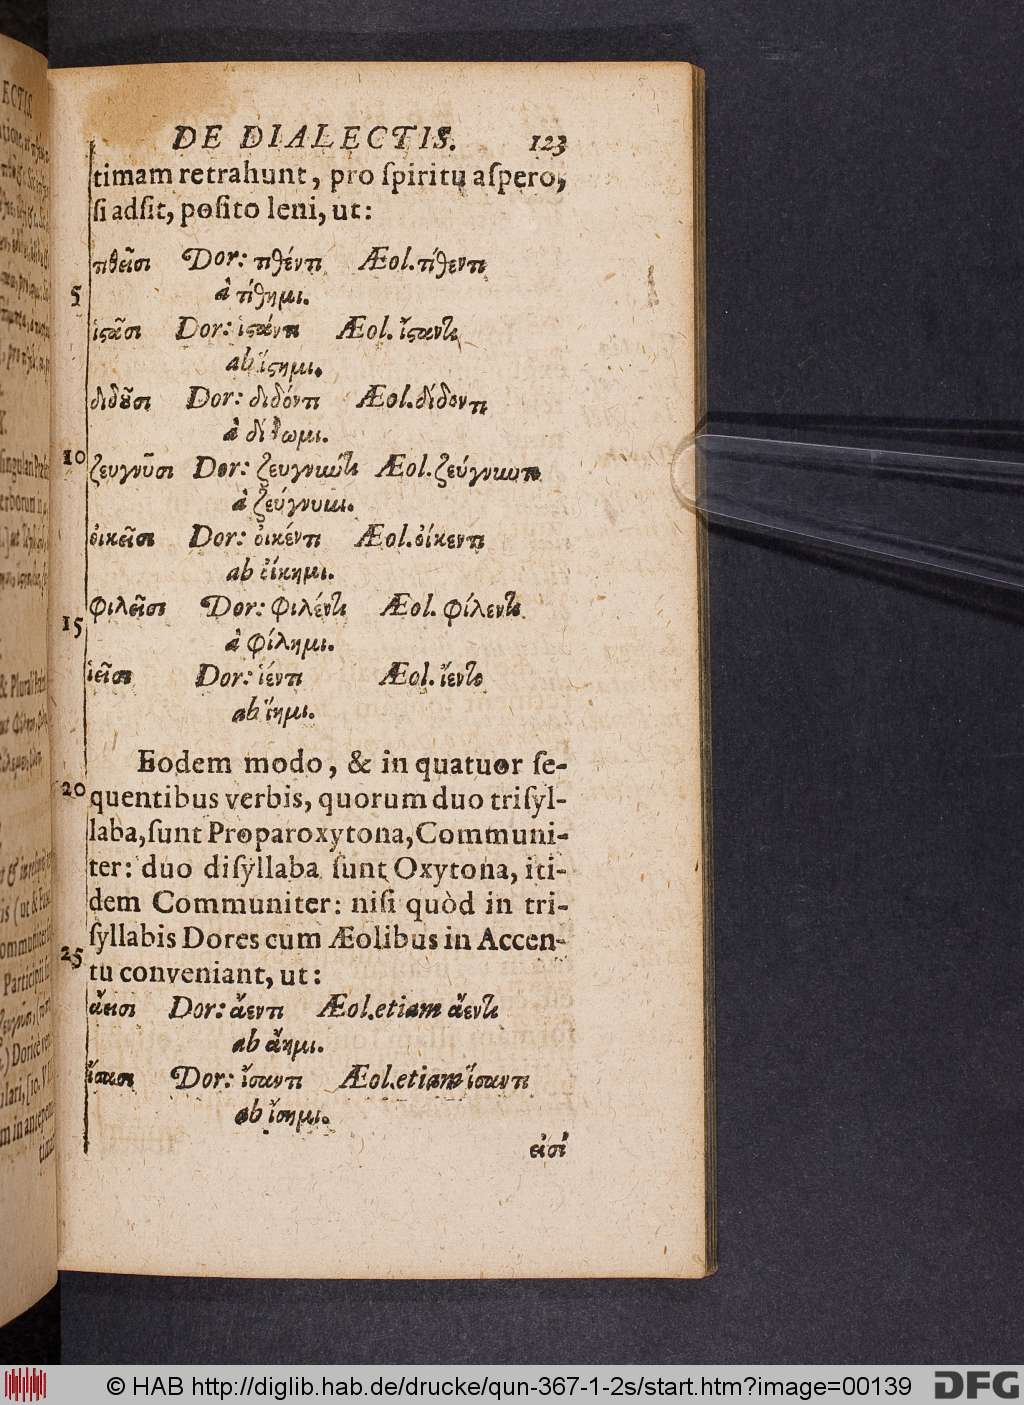 DE DIALECTIS. 123
timam retrahunt, pro ſpiritu aſpero,
ſi adſit, poſito leni, ut:
τιθεῖσι Dor: τιθέντι Æol. τίθεντι
5 à τίθημι.
ἱϛᾶσι Dor: ἱϛάντι Æol. ἴϛαντι
ab ἵϛημι.
διδοῦσι Dor: διδόντι Æol. δίδοντι
à δίδωμι.
10 ζευγνῦσι Dor: ζευγνύντι Æol. ζεύγνυντι
à ζεύγνυμι.
οἰκεῖσι Dor: οἰκέντι Æol. οἴκεντι
ab οἴκημι.
φιλεῖσι Dor: φιλέντι Æol. φίλεντι
15 à φίλημι.
ἱεῖσι Dor: ἱέντι Æol. ἴεντι
ab ἵημι.
Eodem modo, & in quatuor ſe-
20 quentibus verbis, quorum duo triſyl-
laba, ſunt Proparoxytona, Communi-
ter: duo diſyllaba ſunt Oxytona, iti-
dem Communiter: niſi quòd in tri-
ſyllabis Dores cum Æolibus in Accen-
25 tu conveniant, ut:
ἄεισι Dor: ἄεντι Æol. etiam ἄεντι
ab ἄημι.
ἴσασι Dor: ἴσαντι Æol. etiam ἴσαντι
ab ἴσημι.
εἰσί
© HAB http://diglib.hab.de/drucke/qun-367-1-2s/start.htm?image=00139 DFG